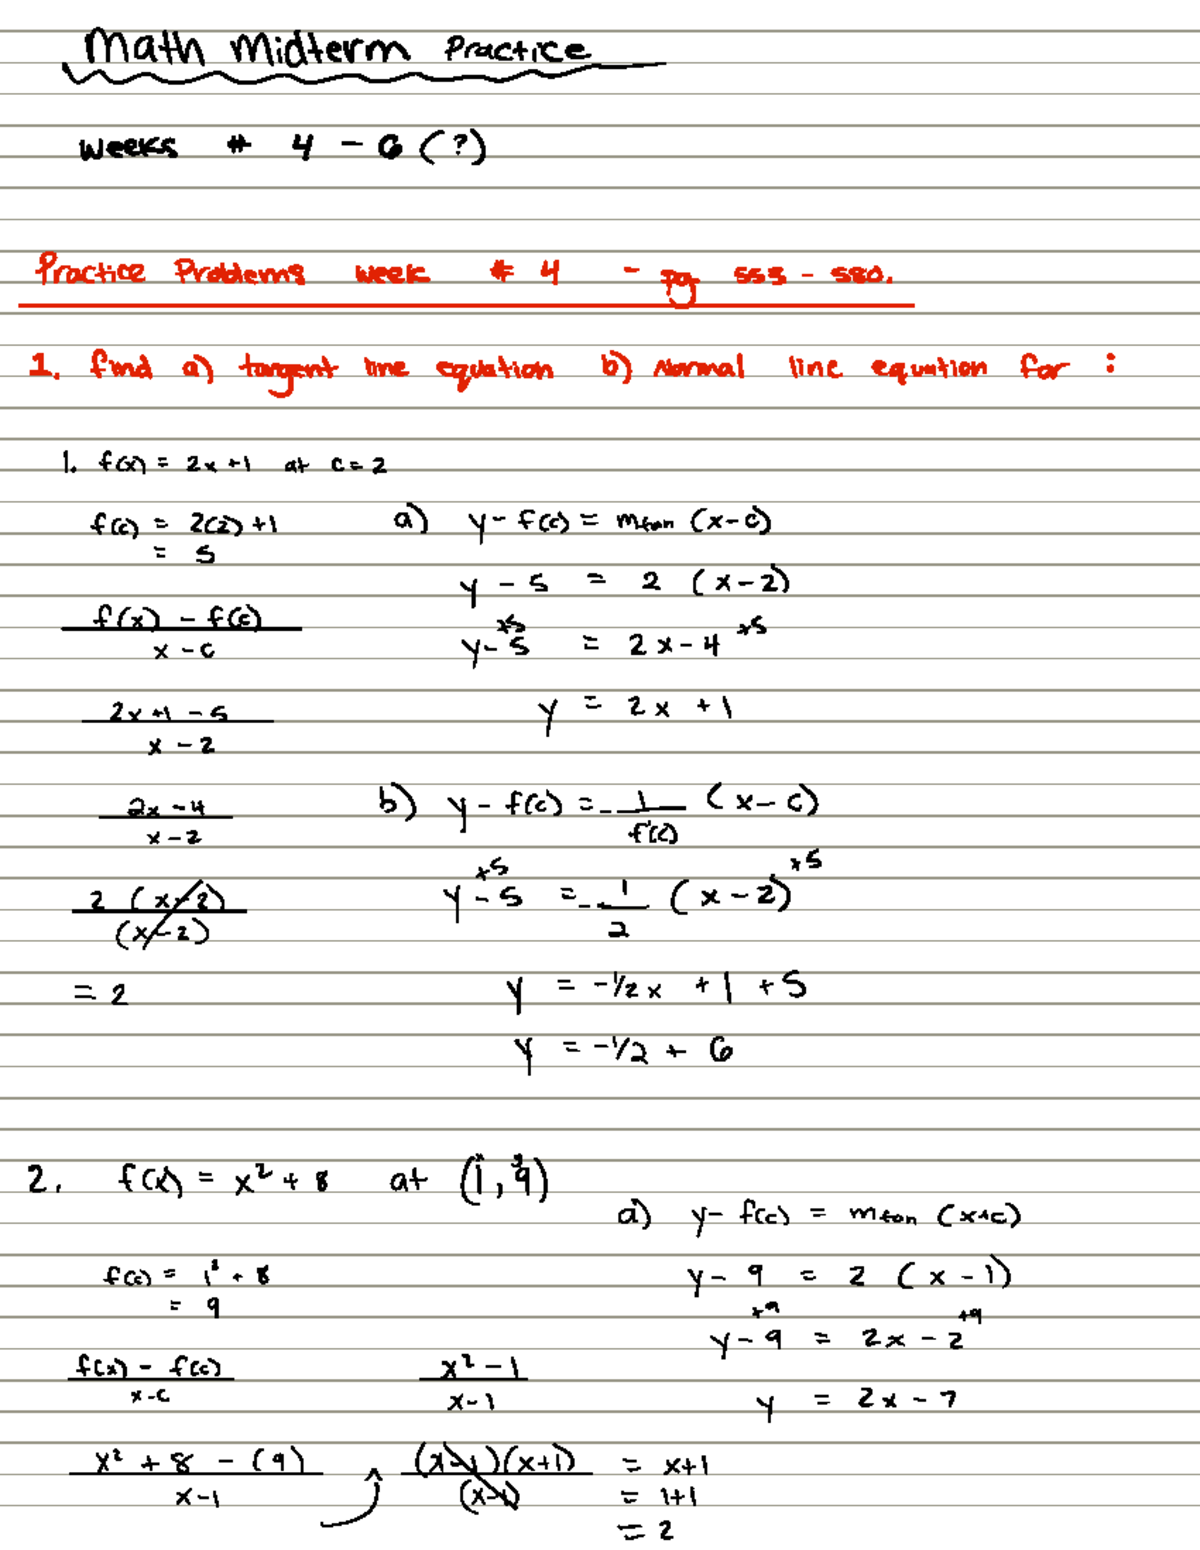 Math Midterm Practice
Weeks # 4 - 6 (?)
Practice Problems Week # 4 - pg 553 - 580.
1. find a) tangent line equation b) Normal line equation for :
1. f(x) = 2x +1 at c = 2
f(c) = 2(2) +1
= 5
f(x) - f(c)
x - c
2x +1 - 5
x - 2
2x - 4
x - 2
2 (x-2)
(x-2)
= 2
a) y - f(c) = mtan (x-c)
y - 5 = 2 (x-2)
+5 +5
y - 5 = 2x - 4
y = 2x + 1
b) y - f(c) = - 1 (x-c)
f'(c)
+5 +5
y - 5 = - 1 (x-2)
2
y = -1/2x + 1 + 5
y = -1/2 + 6
2. f(x) = x² + 8 at (1, 9)
x y
f(c) = 1² + 8
= 9
f(x) - f(c)
x-c
x² + 8 - (9)
x-1
x² - 1
x-1
(x-1)(x+1) = x+1
(x-1) = 1+1
= 2
a) y - f(c) = mtan (x+c)
y - 9 = 2 (x-1)
+9 +9
y - 9 = 2x - 2
y = 2x - 7